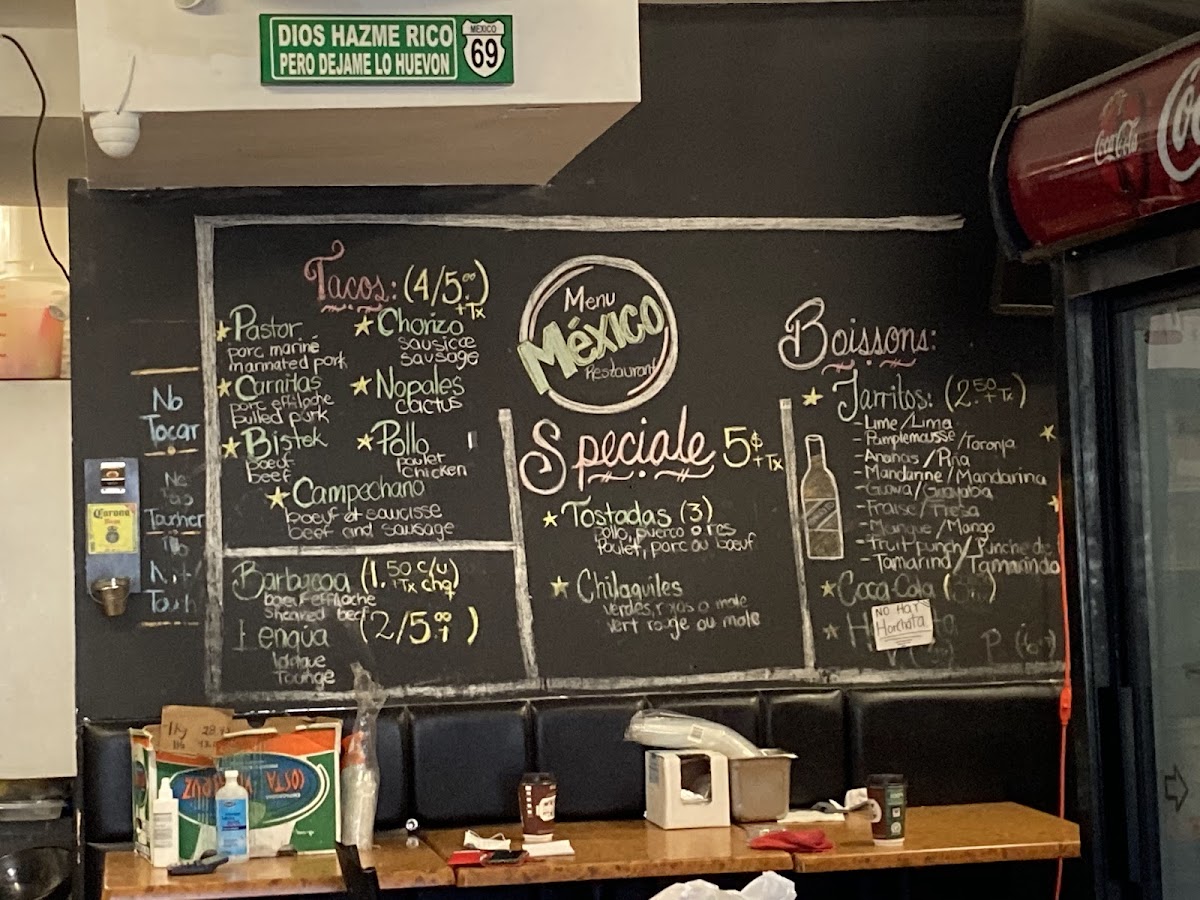 DIOS HAZME RICO
PERO DEJAME LO HUEVON
MEXICO
69
Coca-Cola
Tacos: (4/5.00)
+Tx
Pastor
porc mariné
marinated pork
Carnitas
porc effiloche
pulled pork
Bistek
boeuf
beef
Chorizo
sausice
sausage
Nopales
cactus
Pollo
poulet
chicken
Campechano
boeuf et saucisse
beef and sausage
Barbacoa (1.50 c/u)
+Tx chq
boeuf effiloche
sheared beef
(2/5.00)
Lengua
langue
Tounge
Menu
México
Restaurant
Speciale 5$
+Tx
Tostadas (3)
pollo, puerco o res
Poulet, porc ou boeuf
Chilaquiles
verdes, rojos o mole
vert rouge ou mole
Boissons:
Jarritos: (2.50 +Tx)
- Lime/Lima
- Pamplemousse/Toronja
- Ananas/Piña
- Mandarine/Mandarina
- Goava/Guayaba
- Fraise/Fresa
- Mangue/Mango
- Fruit punch/Punche de
- Tamarind/Tamarindo
Coca-Cola
NO HAY
Horchata
No
Tocar
No
Pas
Toucher
Corona
1kg 28.
COSTA